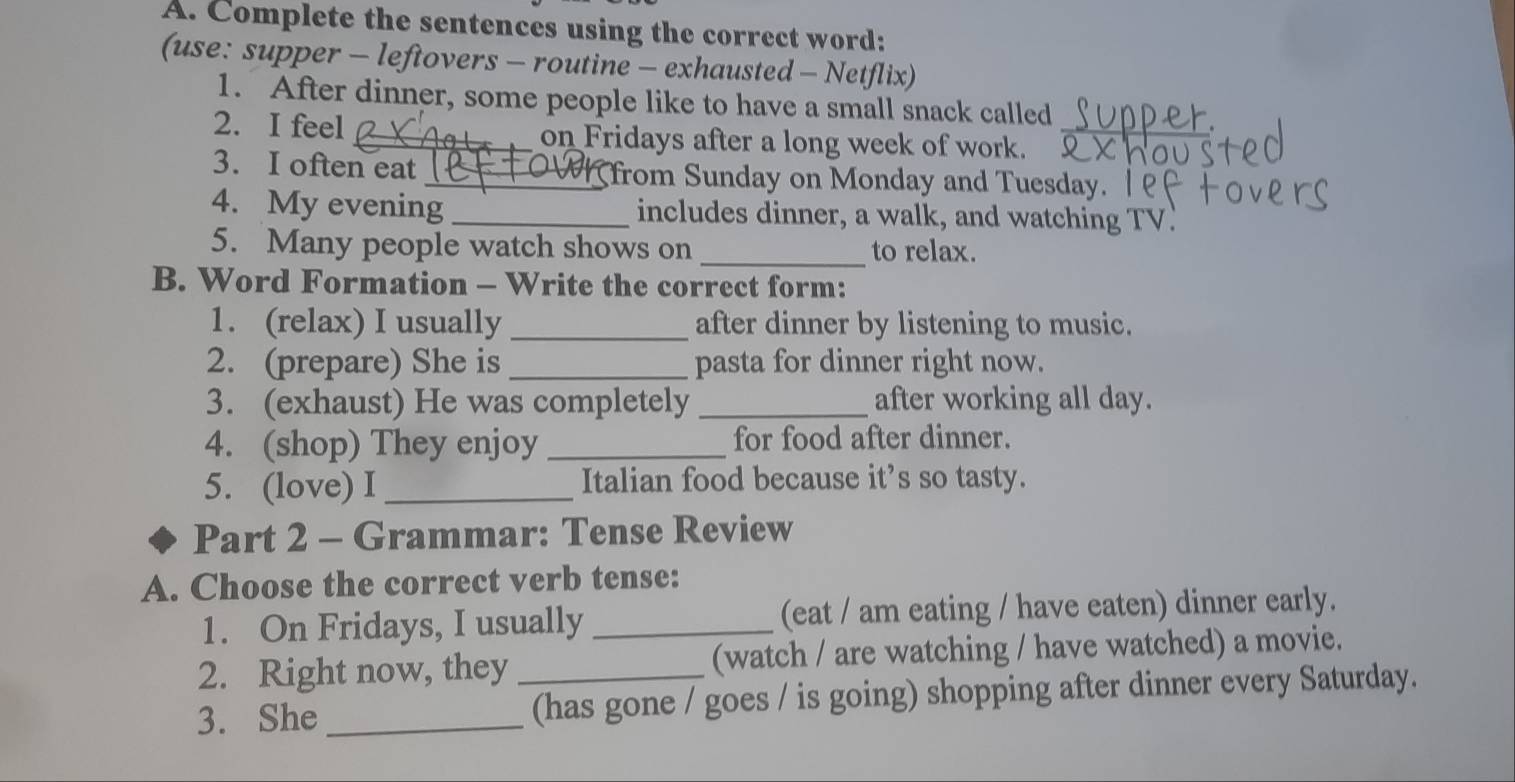 A. Complete the sentences using the correct word:
(use: supper – leftovers – routine – exhausted – Netflix)
1. After dinner, some people like to have a small snack called supper.
2. I feel __________ on Fridays after a long week of work. exhousted
3. I often eat leftovers from Sunday on Monday and Tuesday. leftovers
4. My evening __________ includes dinner, a walk, and watching TV.
5. Many people watch shows on __________ to relax.
B. Word Formation – Write the correct form:
1. (relax) I usually __________ after dinner by listening to music.
2. (prepare) She is __________ pasta for dinner right now.
3. (exhaust) He was completely __________ after working all day.
4. (shop) They enjoy __________ for food after dinner.
5. (love) I __________ Italian food because it's so tasty.
◆ Part 2 – Grammar: Tense Review
A. Choose the correct verb tense:
1. On Fridays, I usually __________ (eat / am eating / have eaten) dinner early.
2. Right now, they __________ (watch / are watching / have watched) a movie.
3. She __________ (has gone / goes / is going) shopping after dinner every Saturday.